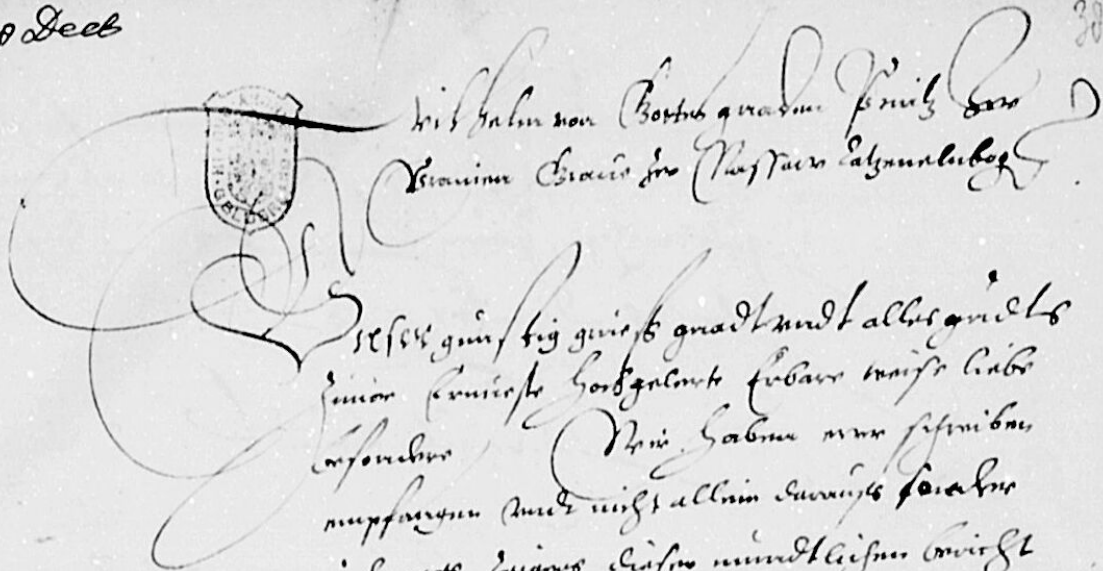 8 Decb
38
Wilhelm von Gottes gnaden Printz Zw
Uranien Graue Zw Nassaw Catzenelnbog
Vnser gunstig grues gnadt vndt alles gudts
Zuuor Ernueste Hochgelerte Erbare weise liebe
besondere Wir haben ewr schreiben
empfangen vndt nicht allein darauss sonder
dieser mundtlichen bericht